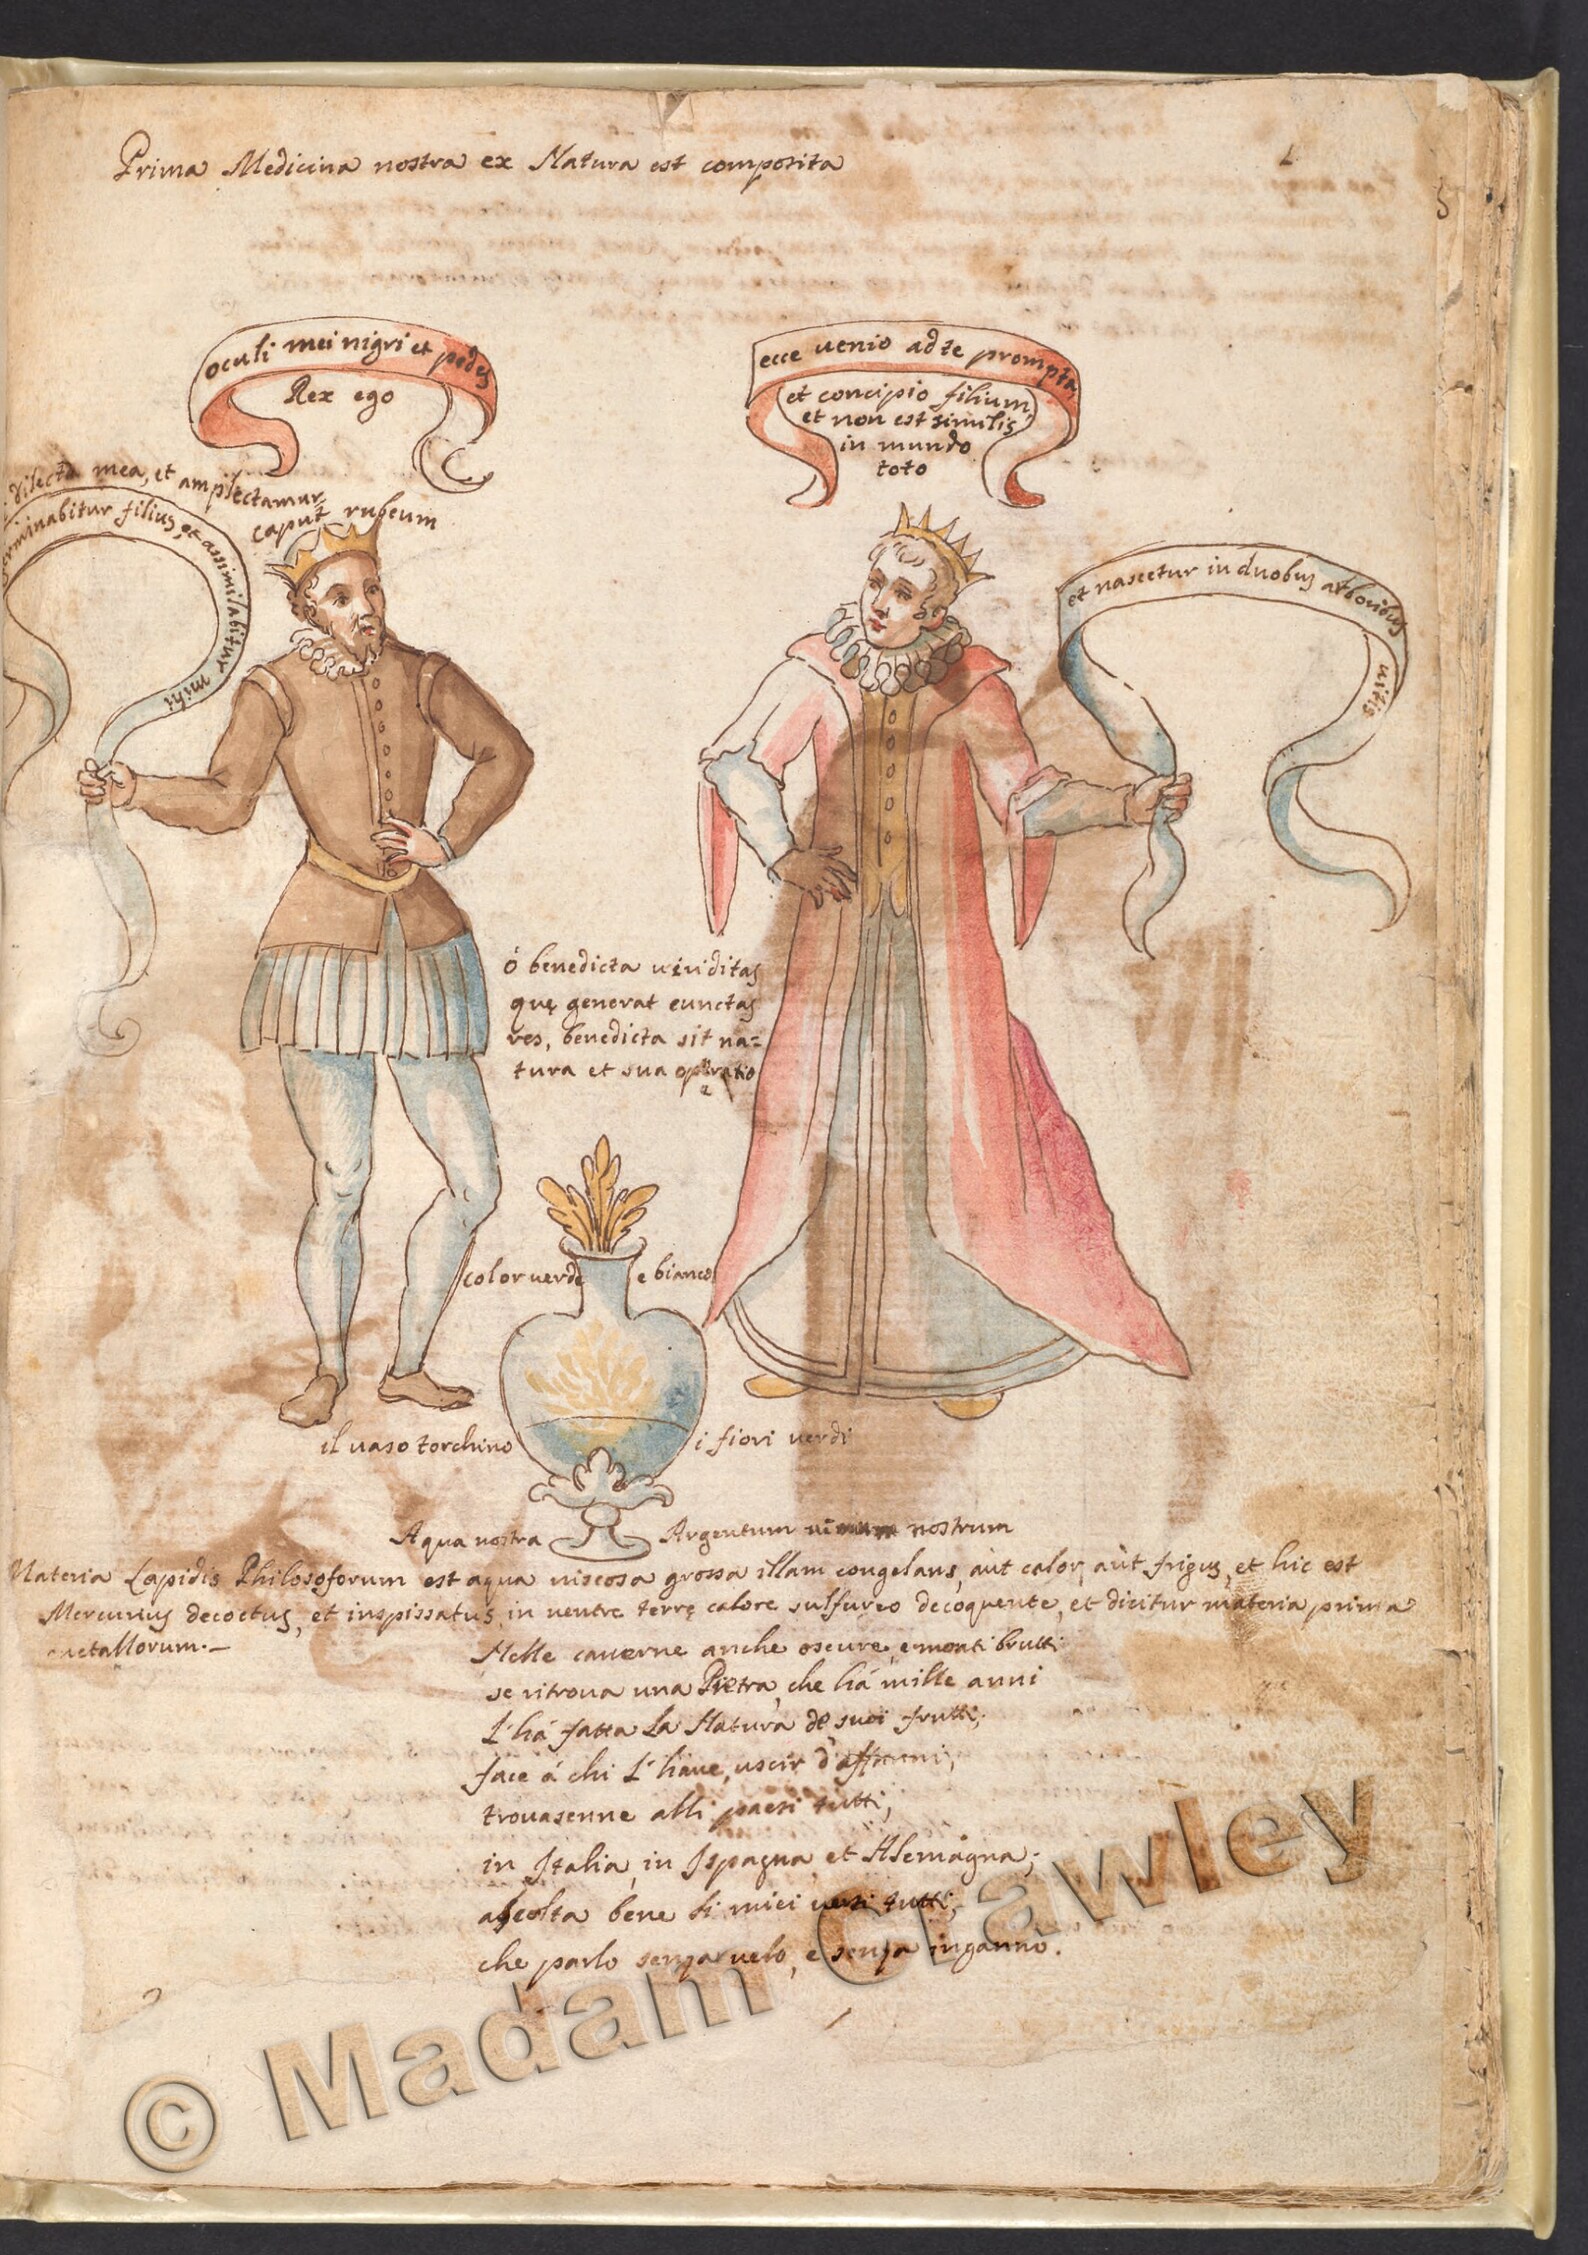 Prima Medicina nostra ex Natura est composita
5
oculi mei nigri et pedes
Rex ego
ecce uenio ad te prompta
et concipio filium,
et non est similis
in mundo
toto
dilecta mea, et amplectamur
caput rubeum
germinabitur filius, et assimilabitur mihi
et nascetur in duobus arboribus uitis
ó benedicta uiriditas
quę generat cunctas
res, benedicta sit na=
tura et sua operatio
color uerde e bianco
il uaso torchino i fiori verdi
Aqua nostra Argentum uiuum nostrum
Materia Lapidis Philosoforum est aqua uiscosa grossa illam congelans, aùt calor, aùt frigus, et hic est
Mercurius decoctus, et inspissatus in uentre terrę calore sulfureo decoquente, et dicitur materia prima
metallorum.—
Nelle cauerne anche oscure, e monti brutti
se ritroua una Pietra, che há mille anni
L'há fatta La Natura de suoi frutti;
face á chi L'haue, uscir d'affanni,
trouasenne alli paesi tutti,
in Italia, in Ispagna, et Alemagna;
ascolta bene li miei uersi tutti,
che parlo senza uelo, e senza inganno.
© Madam Crawley